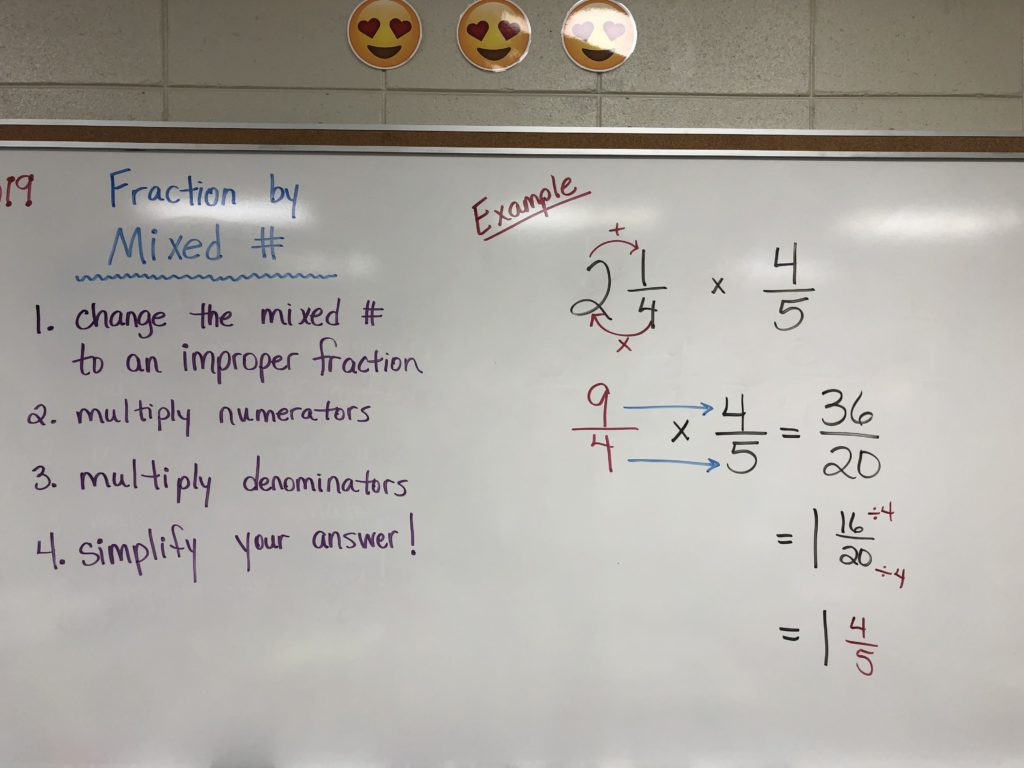 019
Fraction by
Mixed #
1. change the mixed #
to an improper fraction
2. multiply numerators
3. multiply denominators
4. simplify your answer!
Example
+
2 1/4 x 4/5
x
9/4 x 4/5 = 36/20
= 1 16/20 ÷4 ÷4
= 1 4/5